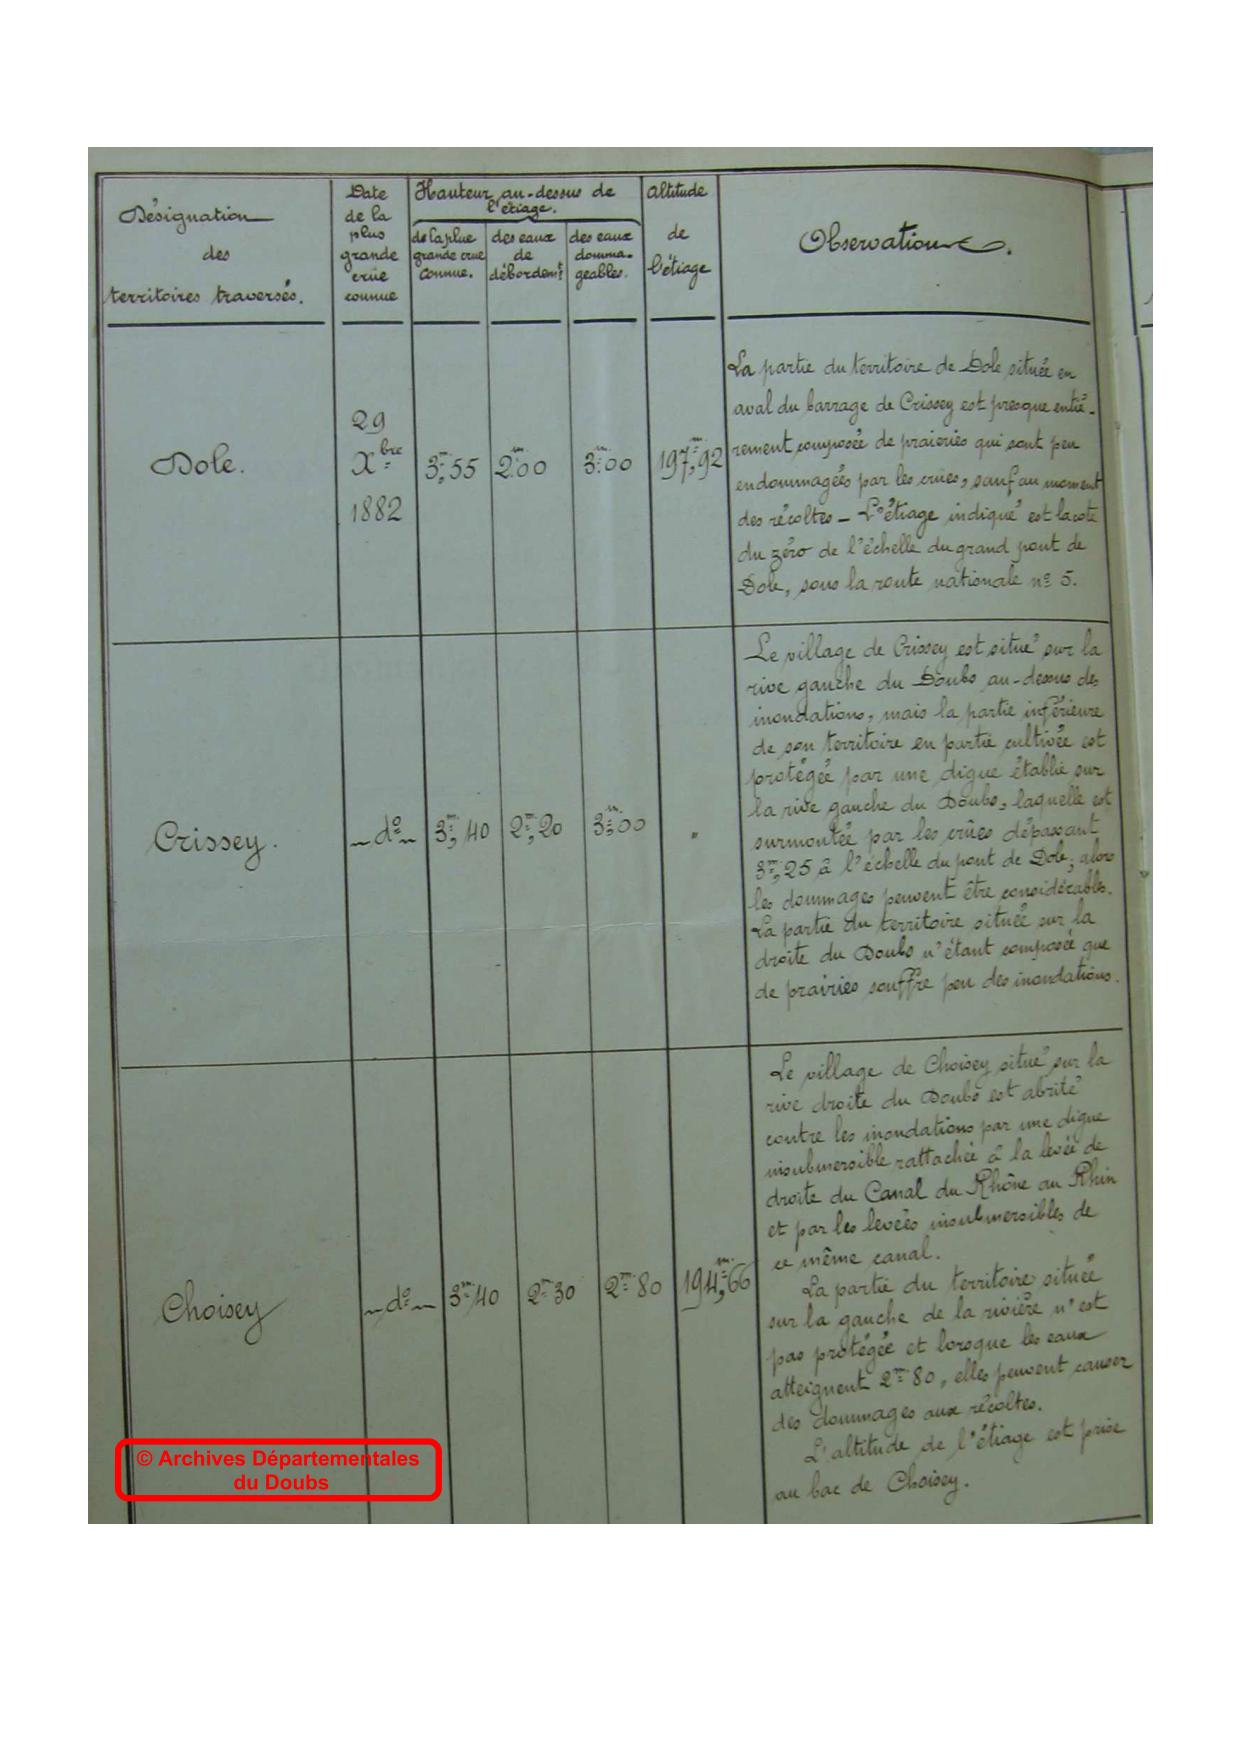 Désignation
des
territoires traversés.
Date
de la
plus
grande
crue
connue
Hauteur au-dessus de
l'étiage.
de la plus
grande crue
connue.
des eaux
de
débordem.t
des eaux
domma-
geables.
Altitude
de
l'étiage
Observations.
Dole.
29
Xbre
1882
3m,55
2m,00
3m,00
197m,92
La partie du territoire de Dole située en
aval du barrage de Crissey est presque entiè-
rement composée de praieries qui sont peu
endommagées par les crûes, sauf au moment
des récoltes – L'étiage indiqué est la cote
du zéro de l'échelle du grand pont de
Dole, sous la route nationale no 5.
Crissey.
do
3m,40
2m,20
3m,00
"
Le village de Crissey est situé sur la
rive gauche du Doubs au-dessus des
inondations, mais la partie inférieure
de son territoire en partie cultivée est
protégée par une digue établie sur
la rive gauche du Doubs, laquelle est
surmontée par les crûes dépassant
3m,25 à l'échelle du pont de Dole; alors
les dommages peuvent être considérables.
La partie du territoire située sur la
droite du Doubs n'étant composée que
de prairies souffre peu des inondations.
Choisey
do
3m,40
2m,30
2m,80
194m,66
Le village de Choisey situé sur la
rive droite du Doubs est abrité
contre les inondations par une digue
insubmersible rattachée à la levée de
droite du Canal du Rhône au Rhin
et par les levées insubmersibles de
ce même canal.
La partie du territoire située
sur la gauche de la rivière n'est
pas protégée et lorsque les eaux
atteignent 2m,80, elles peuvent causer
des dommages aux récoltes.
L'altitude de l'étiage est prise
au bac de Choisey.
© Archives Départementales
du Doubs